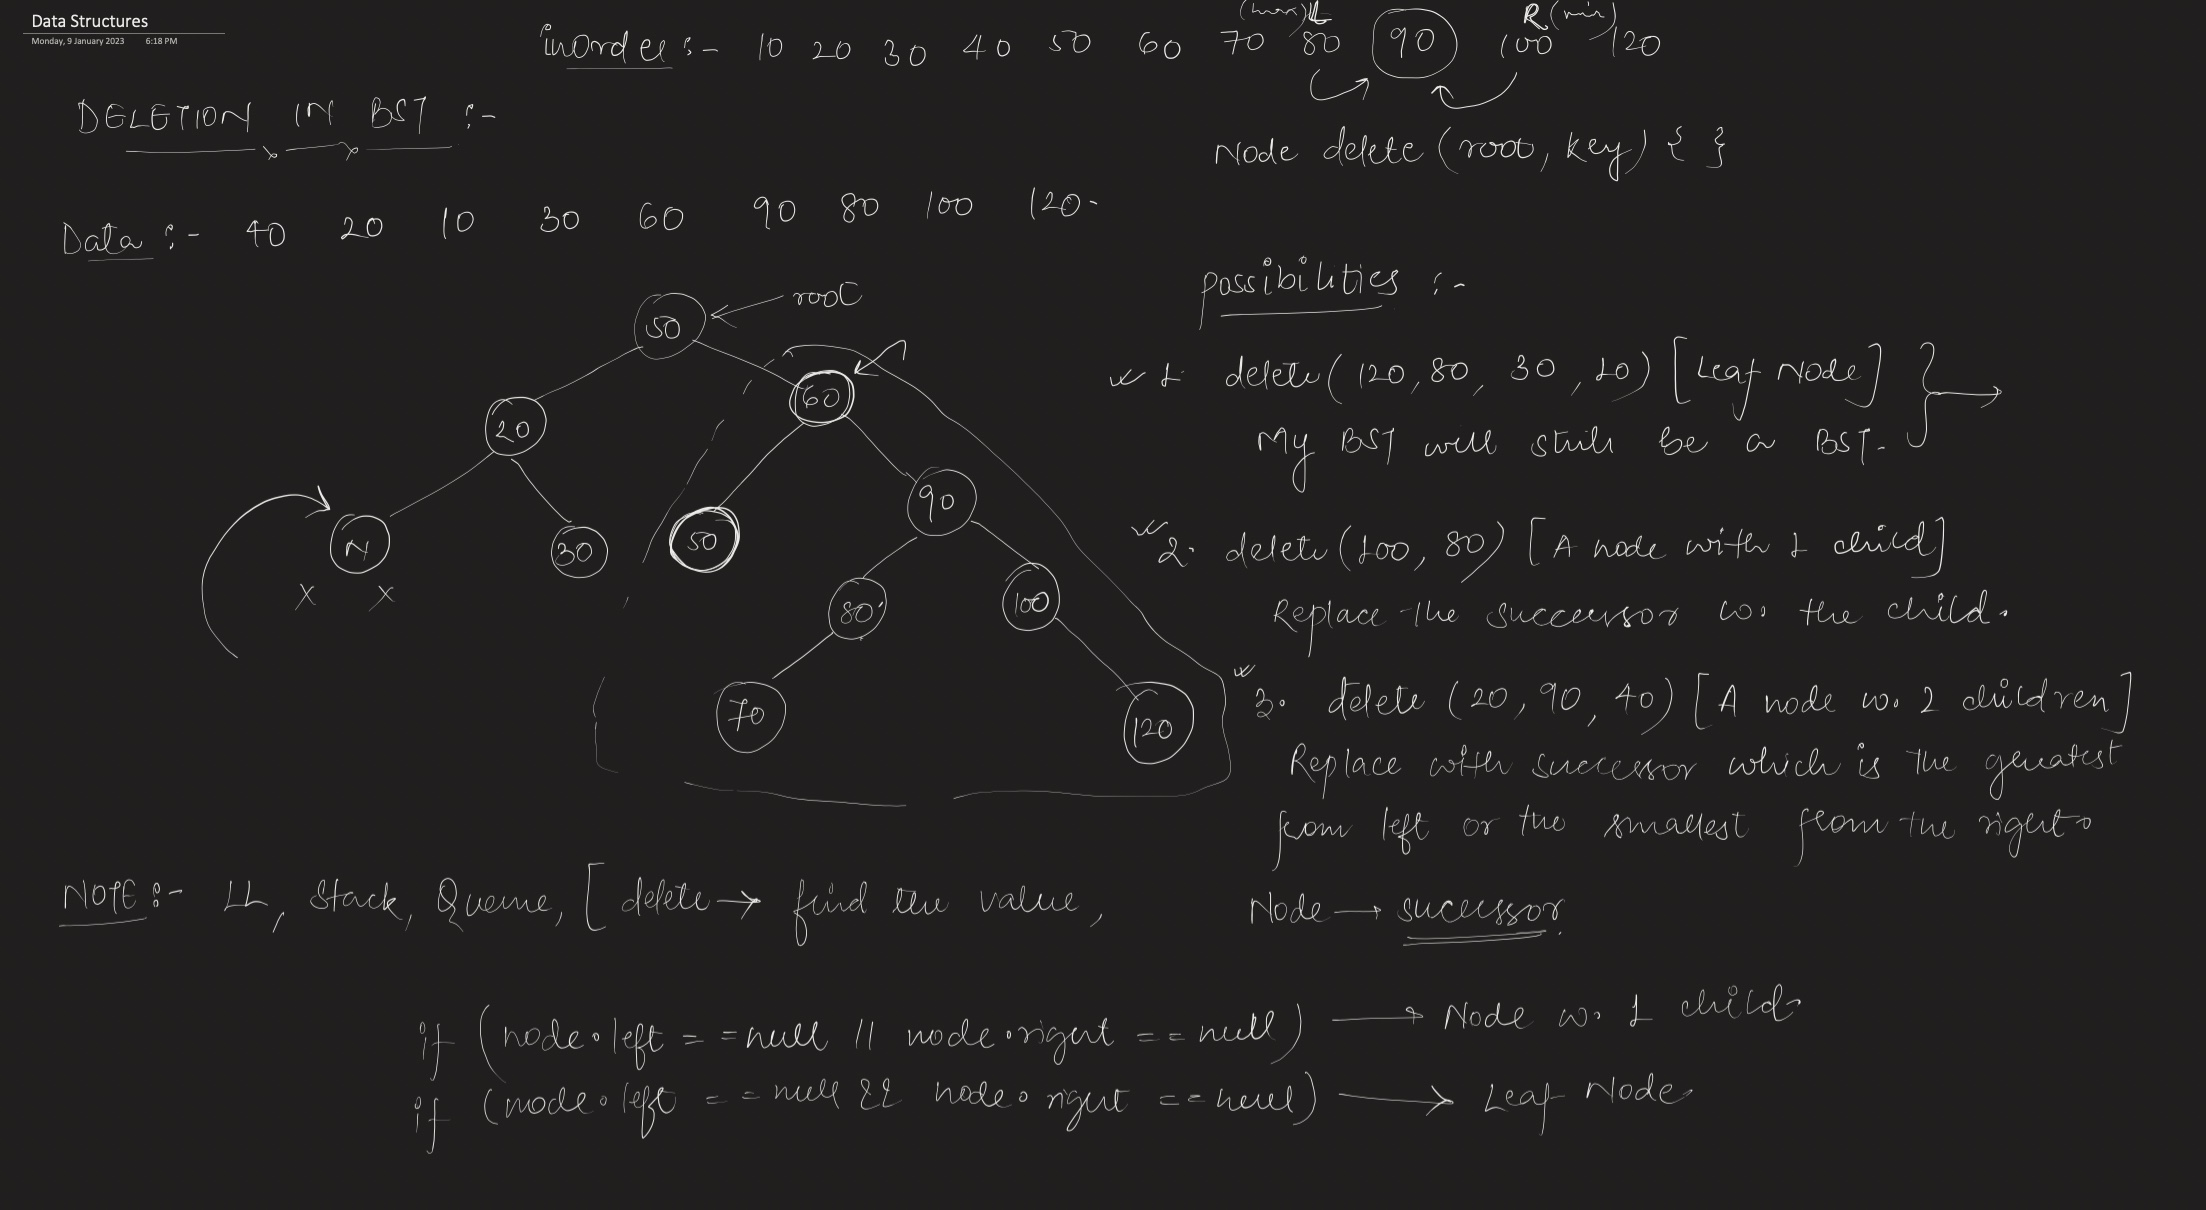 Data Structures
Monday, 9 January 2023 6:18 PM
inorder :- 10 20 30 40 50 60 70 80 90 100 120
(max) L R (min)
DELETION IN BST :-
Node delete (root, key) { }
Data :- 40 20 10 30 60 90 80 100 120.
possibilities :-
root
50
60
20
90
50
N
30
X X
80
100
70
120
1. delete (120, 80, 30, 10) [Leaf Node]
My BST will still be a BST.
2. delete (100, 80) [A node with 1 child]
Replace the successor w. the child.
3. delete (20, 90, 40) [A node w. 2 children]
Replace with successor which is the greatest
from left or the smallest from the right.
NOTE :- LL, Stack, Queue, [ delete → find the value,
Node → sucessor.
if (node.left == null || node.right == null) → Node w. 1 child.
if (node.left == null && node.right == null) → Leaf Node.